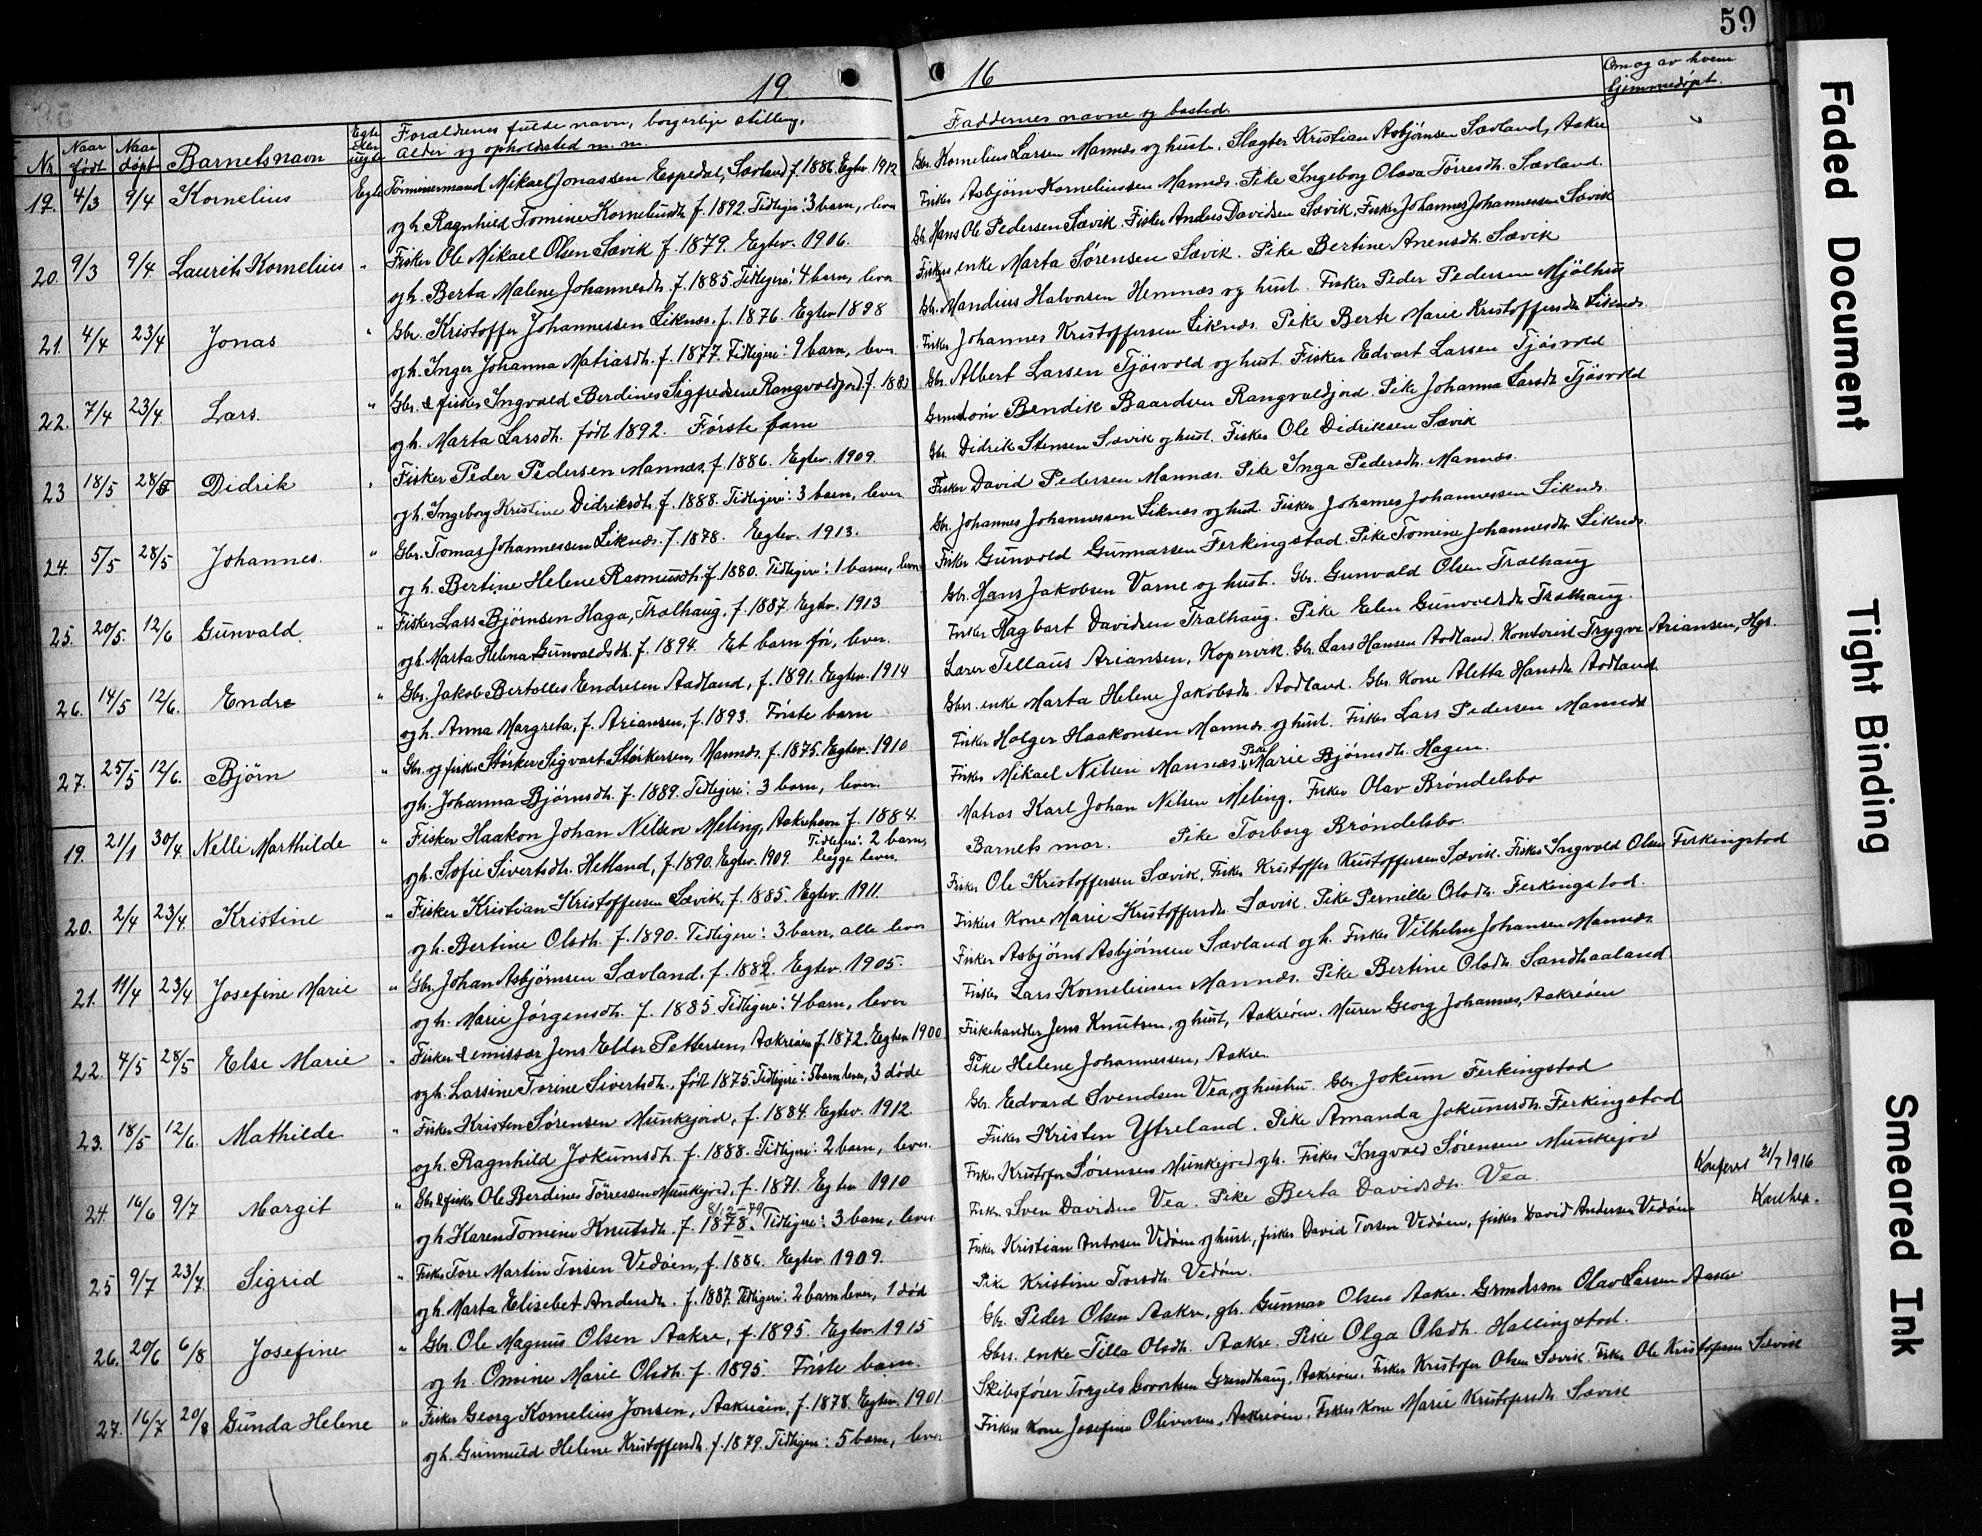 59
19
16
Nr.
Naar født
Naar døpt
Barnets navn
Egte eller uegte
Forældrenes fulde navn, borgerlige stilling,
alder og opholdssted m. m.
Faddernes navne og bosted.
Om og av hvem hjemmedøpt.
19. 4/3 9/4 Kornelius Egte Tømmermand Mikael Jonassen Espedal, Sævland f. 1886. Egtev. 1912
og h. Ragnhild Tomine Korneliusdtr. f. 1892. Tidligere: 3 barn, lever
Gbr. Kornelius Larsen Mannes og hustr. Slagter Kristian Asbjørnsen Sævland, Aakre
Fisker Asbjørn Korneliussen Mannes. Pike Ingeborg Olava Tørresdtr. Sævland.
20. 9/3 9/4 Laurits Kornelius " Fisker Ole Mikael Olsen Sævik f. 1879. Egtev. 1906.
og h. Berta Malene Johannesdtr. f. 1885. Tidligere: 4 barn, lever
Gbr. Hans Ole Pedersen Sævik. Fisker Anders Davidsen Sævik, Fisker Johannes Johannessen Sævik
Fiskers enke Marta Sørensen Sævik. Pike Bertine Anensdtr. Sævik
21. 4/4 23/4 Jonas " Gbr. Kristoffer Johannessen Liknes. f. 1876. Egtev. 1898
og h. Inger Johanna Matiasdtr. f. 1877. Tidligere: 9 barn, lever
Gbr. Mandius Halvorsen Hemnes og hust. Fisker Peder Pedersen Mjølhus
Fisker Johannes Kristoffersen Liknes. Pike Berte Marie Kristoffersdtr. Liknes.
22. 7/4 23/4. Lars. " Gbr. & fisker Ingvald Berdines Sigfredsen Rangvaldjord f. 188
og h. Marta Larsdtr. født 1892. Første barn
Gbr. Albert Larsen Tjøsvold og hust. Fisker Edvart Larsen Tjøsvold
Bendik Baardsen Rangvaldjord. Pike Johanna Larsdtr. Tjøsvold
23 18/5 28/5 Didrik " Fisker Peder Pedersen Mannes, f. 1886. Egtev. 1909.
og h. Ingeborg Kristine Didriksdtr. f. 1888. Tidligere: 3 barn, lever
Gbr. Didrik Stensen Sævik og hust. Fisker Ole Didriksen Sævik
Fisker David Pedersen Mannes. Pike Inga Pedersdtr. Mannes.
24. 5/5 28/5 Johannes. " Gbr. Tomas Johannessen Liknes. f. 1878. Egtev. 1913.
og h. Bertine Helene Rasmusdtr. f. 1880. Tidligere: 1 barn, lever
Gbr. Johannes Johannessen Liknes og hust. Fisker Johannes Johannessen Liknes.
Fisker Gunvald Gunnarsen Ferkingstad. Pike Tomine Johannesdtr. Liknes
25. 20/5. 12/6 Gunvald. " Fisker Lars Bjørnsen Haga, Tralhaug, f. 1887. Egtev. 1913
og h. Marta Helena Gunvaldsdtr. f. 1894. Et barn før, lever.
Gbr. Hans Jakobsen Varne og hust. Gbr. Gunvald Olsen Tralhaug
Fisker Hagbart Davidsen Tralhaug. Pike Elen Gunvaldsdtr. Tralhaug.
26. 14/5 12/6. Endre " Gbr. Jakob Bertolles Endresen Aadland, f. 1891. Egtev. 1914
og h. Anna Margreta, f. Ariansen, f. 1893. Første barn
Lærer Tellaus Ariansen, Kopervik. Gbr. Lars Hansen Aadland. Kontorist Trygve Ariansen, Hgs.
Gbrs. enke Marta Helene Jakobsdtr. Aadland. Gbr. kone Aletta Hansdtr. Aadland.
27. 25/5 12/6. Bjørn " Gbr. og fisker Størker Sigvart Størkersen, Mannes. f. 1875. Egtev. 1910
og h. Johanna Bjørnsdtr. f. 1889. Tidligere: 3 barn, lever.
Fisker Holger Haakonsen Mannes og hust. Fisker Lars Pedersen Mannes
Fisker Mikael Nilsen Mannes. Pike Marie Bjørnsdtr. Hagen.
19. 21/1 30/4 Nelli Marthilde " Fisker Haakon Johan Nilsen Meling, Aakrehavn f. 1884.
og h. Sofie Sivertsdtr. Hetland, f. 1890. Egtev. 1909. Tidligere: 2 barn, begge lever.
Matros Karl Johan Nilsen Meling. Fisker Olav Brøndelsbo
Barnets mor. Pike Torborg Brøndelsbo.
20. 2/4 23/4. Kristine " Fisker Kristian Kristoffersen Sævik, f. 1885. Egtev. 1911.
og h. Bertine Olsdtr. f. 1890. Tidligere: 3 barn, alle lever
Fisker Ole Kristoffersen Sævik, Fisker Kristoffer Kristoffersen Sævik. Fisker Ingvald Olsen Ferkingstad
Fiskers kone Marie Kristoffersdtr. Sævik. Pike Pernille Olsdtr. Ferkingstad.
21. 11/4 23/4 Josefine Marie " Gbr. Johan Asbjørnsen Sævland. f. 1882. Egtev. 1905.
og h. Marie Jørgensdtr. f. 1885. Tidligere: 4 barn, lever
Fisker Asbjørn Asbjørnsen Sævland og h. Fisker Vilhelm Johansen Mannes.
Fisker Lars Korneliusen Mannes. Pike Bertine Olsdtr. Sandhaaland
22. 4/5 28/5 Else Marie " Fisker & emissær Jens Eldor Pettersen, Aakreøen f. 1872. Egtev. 1900
og h. Larsine Torine Sivertsdtr., født 1875. Tidligere: 5 barn lever, 3 døde
Fiskehandler Jens Knutsen, og hust, Aakreøen. Murer Georg Johannes, Aakreøen
Pike Helene Johannessen, Aakre.
23. 18/5 12/6. Mathilde " Fisker Kristen Sørensen Munkejord, f. 1884. Egtev. 1912.
og h. Ragnhild Jokumsdtr. f. 1888. Tidligere: 2 barn, lever.
Gbr. Edvard Svendsen Vea, og hustru. Gbr. Jokum Ferkingstad
Fisker Kristen Ytreland. Pike Amanda Jokumsdtr. Ferkingstad
24. 16/6 9/7 Margit " Gbr. & fisker Ole Berdines Tørressen Munkejord, f. 1871. Egtev. 1910
og h. Karen Tomine Knutsdtr. f. 1878. 8/12-79 Tidligere: 3 barn, lever
Fisker Kristofer Sørensen Munkejord og h. Fisker Ingvald Sørensen Munkejord
Fisker Sven Davidsen Vea. Pike Berta Davidsdtr. Vea.
Konferert 21/7 1916
25 9/7 23/7. Sigrid " Fisker Tore Martin Torsen Vedøen, f. 1886. Egtev. 1909.
og h. Marta Elisebet Andersdtr. f. 1887. Tidligere: 2 barn lever, 1 død
Fisker Kristian Antonsen Vedøen og hust, fisker David Torsen Vedøen, fisker David Andersen Vedøen
Pike Kristine Torsdtr. Vedøen.
26. 20/6 6/8 Josefine " Gbr. Ole Magnus Olsen Aakre, f. 1895. Egtev. 1915
og h. Omine Marie Olsdtr. f. 1895. Første barn.
Gbr. Peder Olsen Aakre, gbr. Gunnar Olsen Aakre. Grmdsson Olav Larsen Aakre
Gbrs. enke Tilla Olsdtr. Aakre. Pike Olga Olsdtr. Hallingstad.
27. 16/7 20/8 Gunda Helene " Fisker Georg Kornelius Jonsen, Aakreøen, f. 1878. Egtev. 1901.
og h. Gunnuld Helene Kristoffersdtr. f. 1879. Tidligere: 5 barn, lever
Skibsfører Torgils Grindhaug, Aakreøen. Fisker Kristofer Olsen Sævik. Fisker Ole Kristofersen Sævik
Fiskers kone Josefine Oliversen, Aakreøen. Fiskers kone Marie Kristofersdtr. Sævik
Faded Document
Tight Binding
Smeared Ink